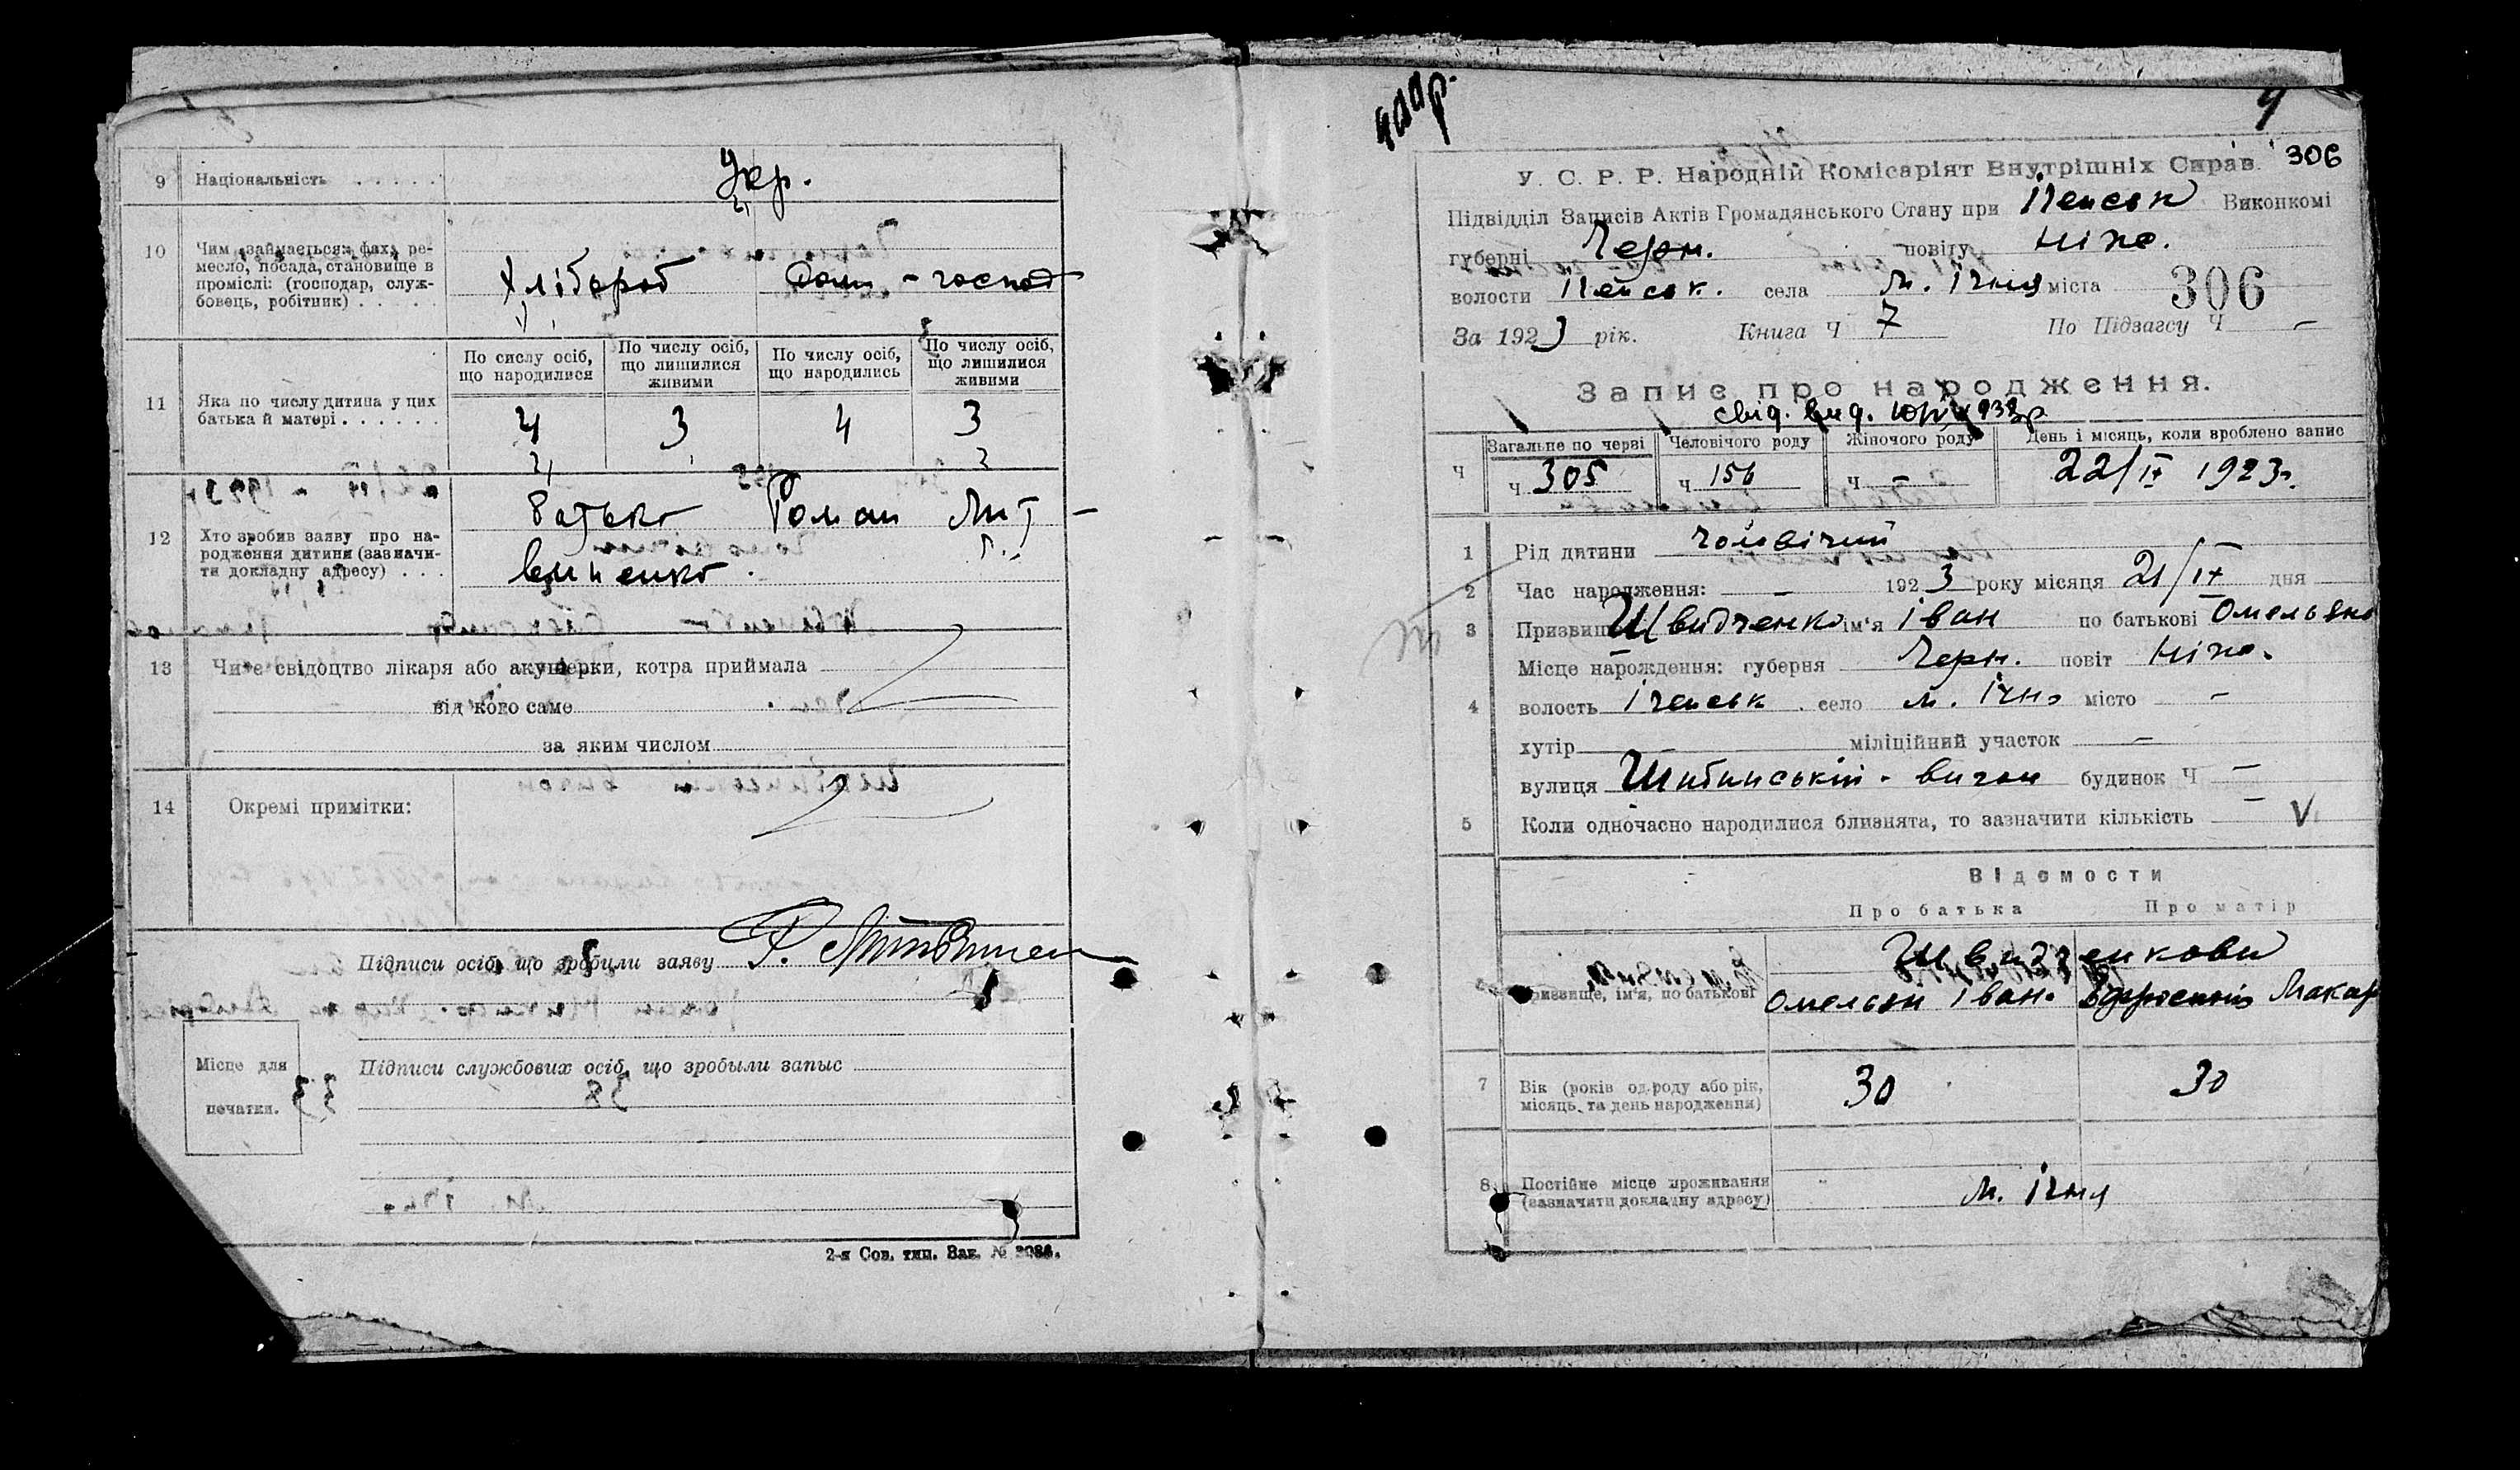 9 Національність . . . . . Укр.
10 Чим займається: фах, ре-
месло, посада, становище в
промислі: (господар, служ-
бовець, робітник) . . . . .
Хлібороб Дом - господ
По сислу осіб, що народилися
По числу осіб, що лишилися живими
По числу осіб, що народились
По числу осіб, що лишилися живими
11 Яка по числу дитина у цих
батька й матері . . . . . .
4 3 4 3
12 Хто зробив заяву про на-
родження дитини (зазначи-
ти докладну адресу) . . .
батько Роман Лит-
виненко.
13 Чи є свідоцтво лікаря або акушерки, котра приймала
від кого саме
за яким числом
14 Окремі примітки:
Підписи осіб, що зробили заяву Р. Литвинен
Місце для
печатки.
Підписи службових осіб, що зробыли запыс
2-я Сов. тип. Зак. №
306
У. С. Р. Р. Народній Комісаріят Внутрішніх Справ.
Підвідділ Записів Актів Громадянського Стану при Іченськ Виконкомі
губерні Черн. повіту Ніже.
волости Іченськ. села м. Ічня міста 306
За 1923 рік. Книга Ч 7 По Підзагсу Ч –
Запис про народження.
свід. вид.
Ч Загальне по черві Человічого роду Жіночого роду День і місяць, коли зроблено запис
Ч 305 Ч 156 Ч – 22/IX 1923р.
1 Рід дитини чоловічий
2 Час народження: – 1923 року місяця 21/IX дня
3 Призвище Швидченко ім'я Іван по батькові Омельяно
Місце народження: губерня Черн. повіт Ніже.
4 волость Іченськ. село м. Ічня місто –
хутір – міліційний участок –
вулиця Шибинський - вигон будинок Ч –
5 Коли одночасно народилися близнята, то зазначити кількість – V
Відомости
Про батька Про матір
Призвище, ім'я, по батькові
Швидченкови
Омельян Іван. Макар
7 Вік (років од роду або рік,
місяць та день народження)
30 30
8 Постійне місце проживання
(зазначити докладну адресу)
м. Ічня